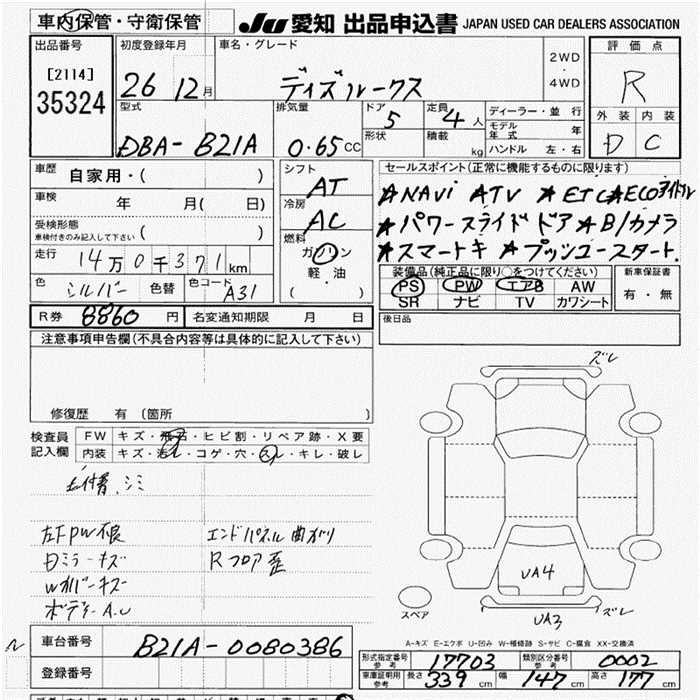 車内保管・守衛保管
JU 愛知 出品申込書 JAPAN USED CAR DEALERS ASSOCIATION
出品番号
[2114]
35324
初度登録年月
26 12月
車名・グレード
デイズルークス
2WD
・
4WD
評価点
R
外装 内装
D C
型式
DBA-B21A
排気量
0.65CC
ドア
5
形状
定員
4人
積載 kg
ディーラー・並行
モデル年式 年
ハンドル 左・右
車歴
自家用・( )
車検
年 月( 日)
受検形態
車検付きのみ記入して下さい ( )
走行
14万0千371km
色
シルバー
色替
色コード
A31
シフト
AT
冷房
AC
燃料
ガソリン
軽油
( )
セールスポイント(正常に機能するものに限ります)
★NAVi ★TV ★ETC★ECOアイドル
★パワースライドドア★B/カメラ
★スマートキ ★プッシュースタート.
装備品(純正品に限り○をつけてください)
PS PW エアB AW
SR ナビ TV カワシート
新車保証書
有・無
後日品
R券 8860円 名変通知期限 月 日
注意事項申告欄(不具合内容等は具体的に記入して下さい)
修復歴 有(箇所 )
検査員
記入欄
FW キズ・飛石・ヒビ割・リペア跡・X要
内装 キズ・汚れ・コゲ・穴・スレ・キレ・破レ
シミ
左F PW不良
エンドパネル曲がり
ミラーキズ
Rフロア歪
Wカバーキズ
ボディーA.U
ズレ
UA4
スペア
UA3
ズレ
A-キズ E-エクボ U-凹み W-補修跡 S-サビ C-腐食 XX-交換済
車台番号
B21A-0080386
登録番号
形式指定番号 参考 17703
類別区分番号 参考 0002
車庫証明用 参考 長さ 339cm 幅 147cm 高さ 177cm